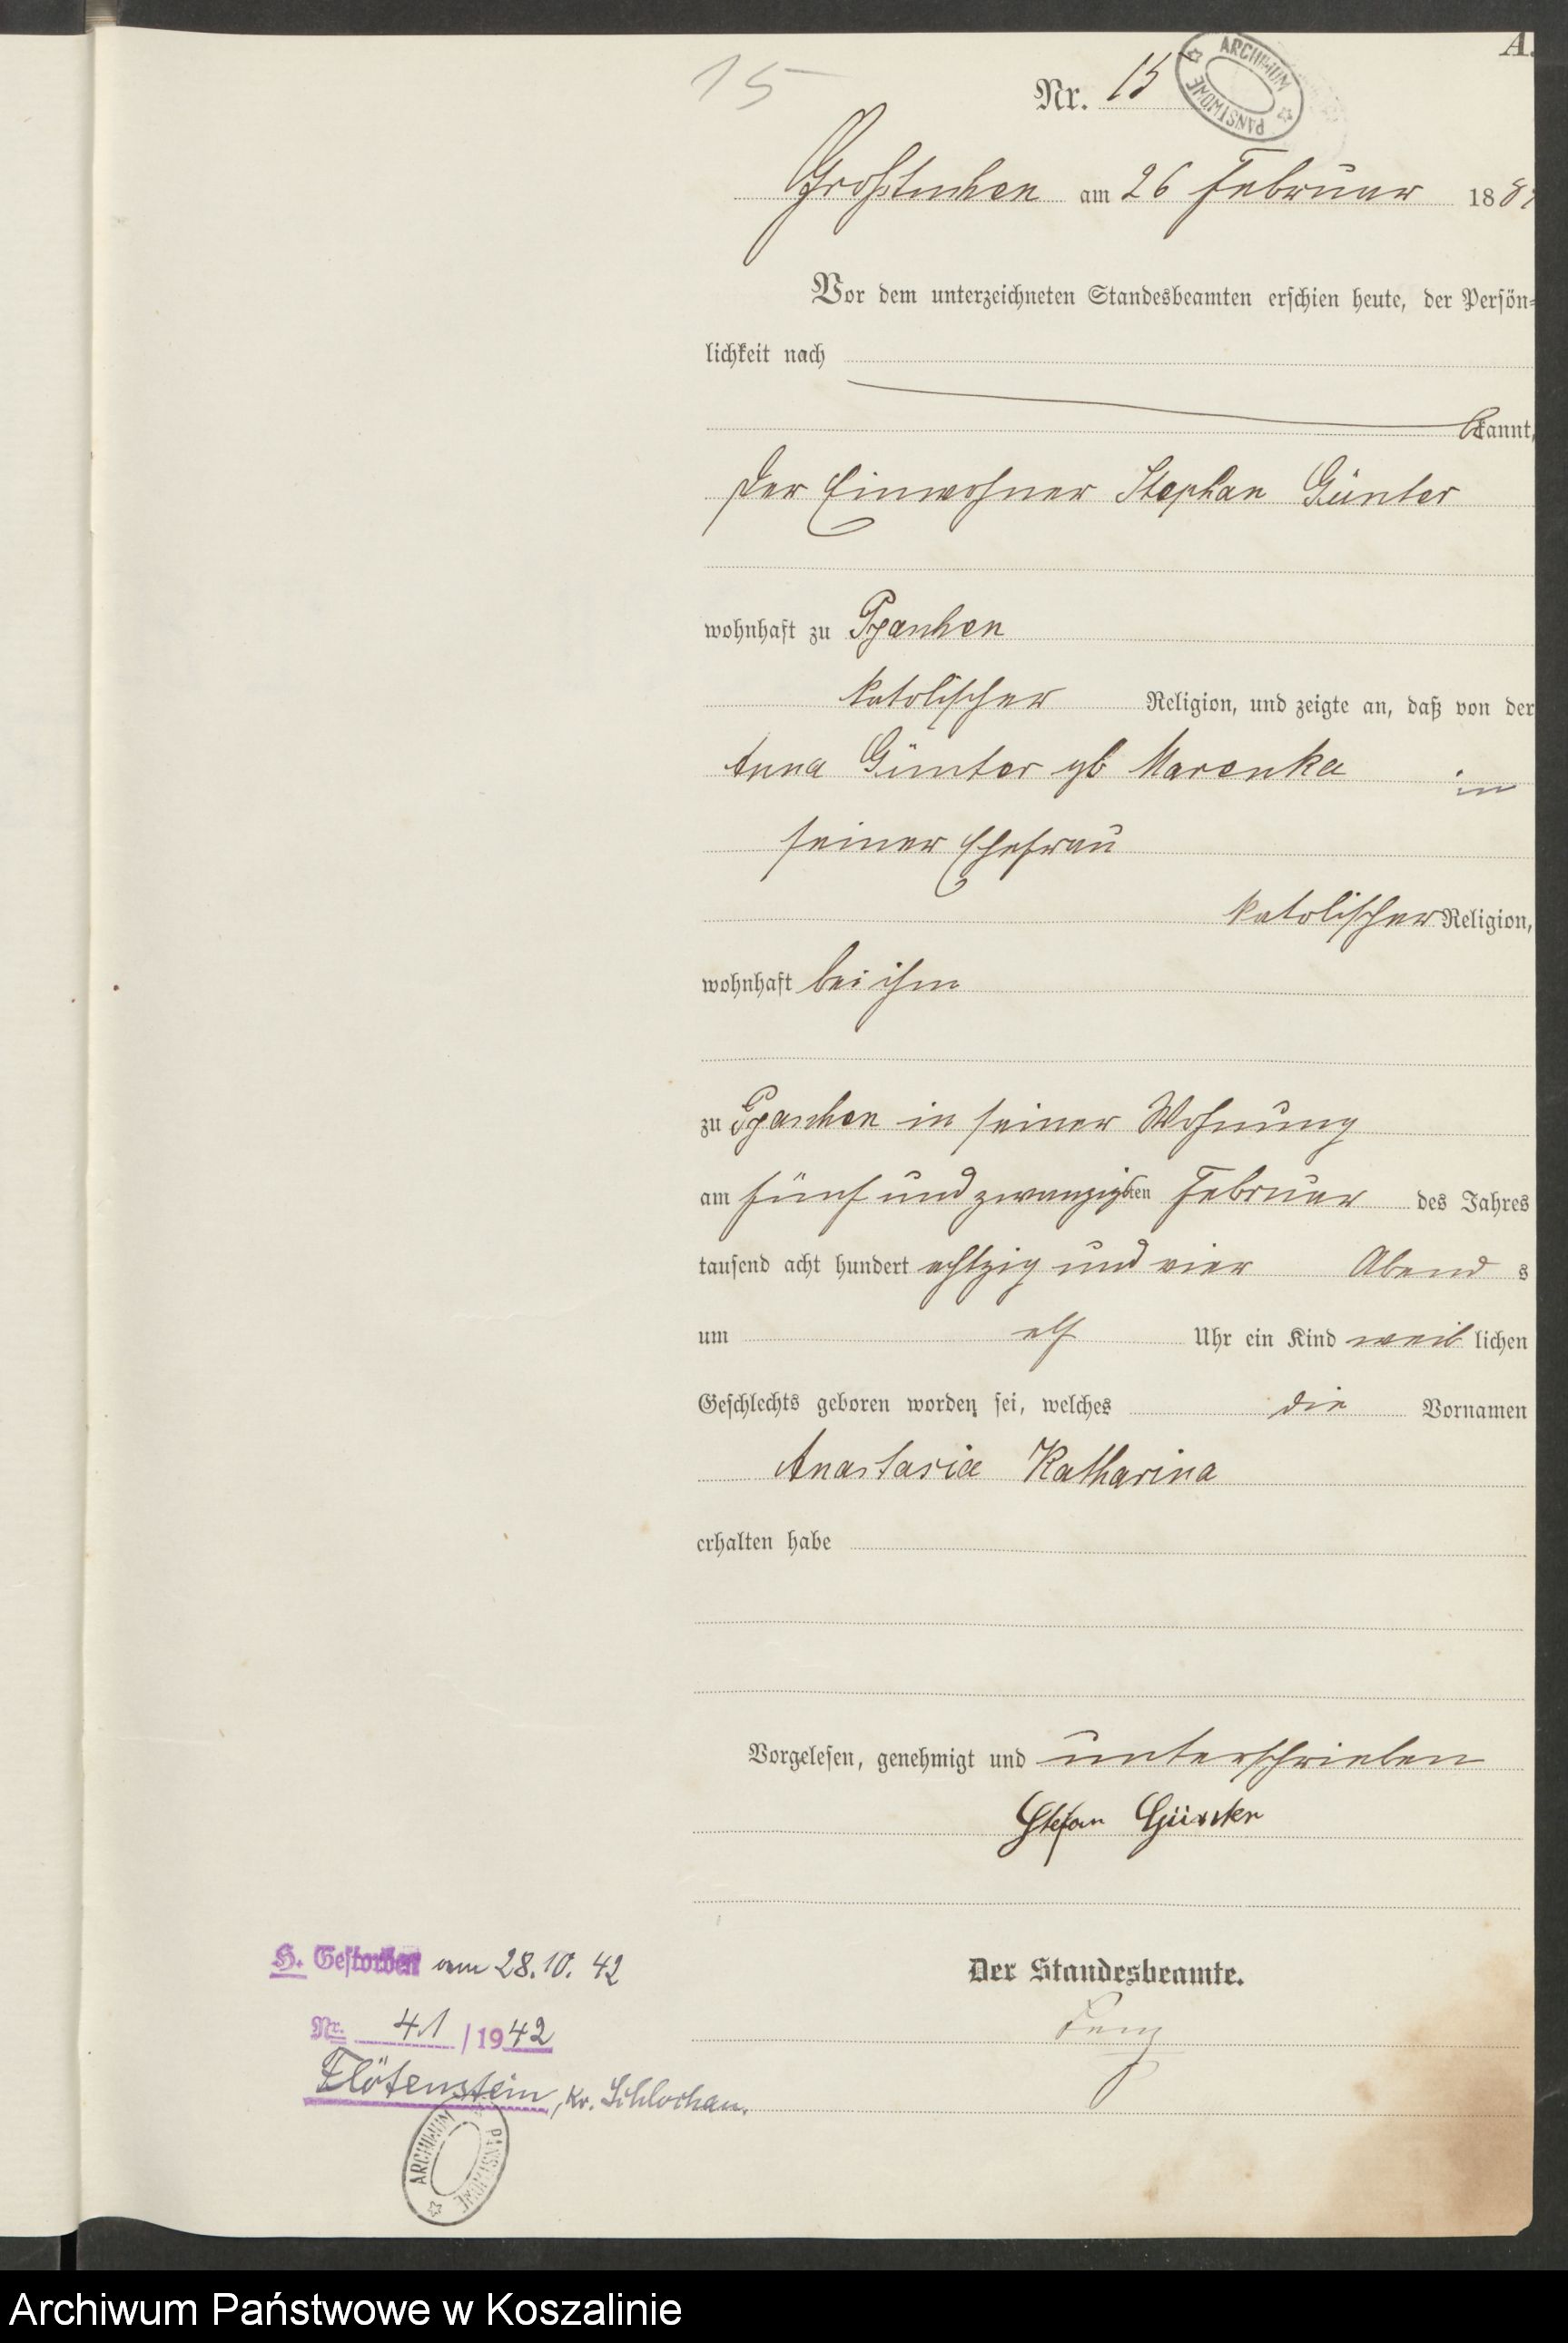 A.
15
Nr. 15
ARCHIWUM PAŃSTWOWE
Großtuchen am 26 Februar 188
Vor dem unterzeichneten Standesbeamten erschien heute, der Persön-
lichkeit nach
bekannt,
der Einwohner Stephan Günter
wohnhaft zu
katolischer Religion, und zeigte an, daß von der
Anna Günter gb Marenka in
seiner Ehefrau
katolischer Religion,
wohnhaft bei ihm
zu in seiner Wohnung
am fünf und zwanzigsten Februar des Jahres
tausend acht hundert achtzig und vier Abend s
um elf Uhr ein Kind weib lichen
Geschlechts geboren worden sei, welches die Vornamen
Anastasia Katharina
erhalten habe
Vorgelesen, genehmigt und unterschrieben
Stefan Günter
Der Standesbeamte.
H. Gestorben am 28.10.42
Nr. 41 / 1942
Flötenstein, Kr. Schlochau.
ARCHIWUM PAŃSTWOWE
Archiwum Państwowe w Koszalinie